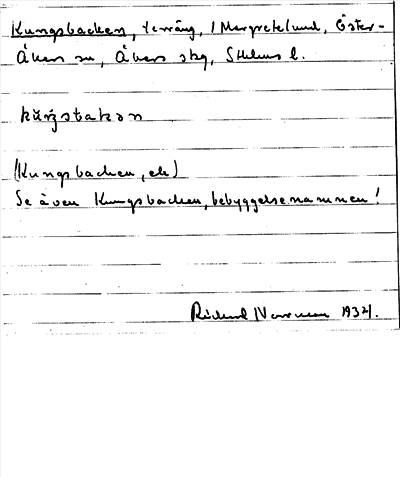 Kungsbacken, terräng, i Margretelund, Öster-
Åkers sn, Åkers skg, Sthlms l.
kūŋstakan
(Kungsbacken, ek)
Se även Kungsbacken, bebyggelsenamnen!
Rickard 1932.